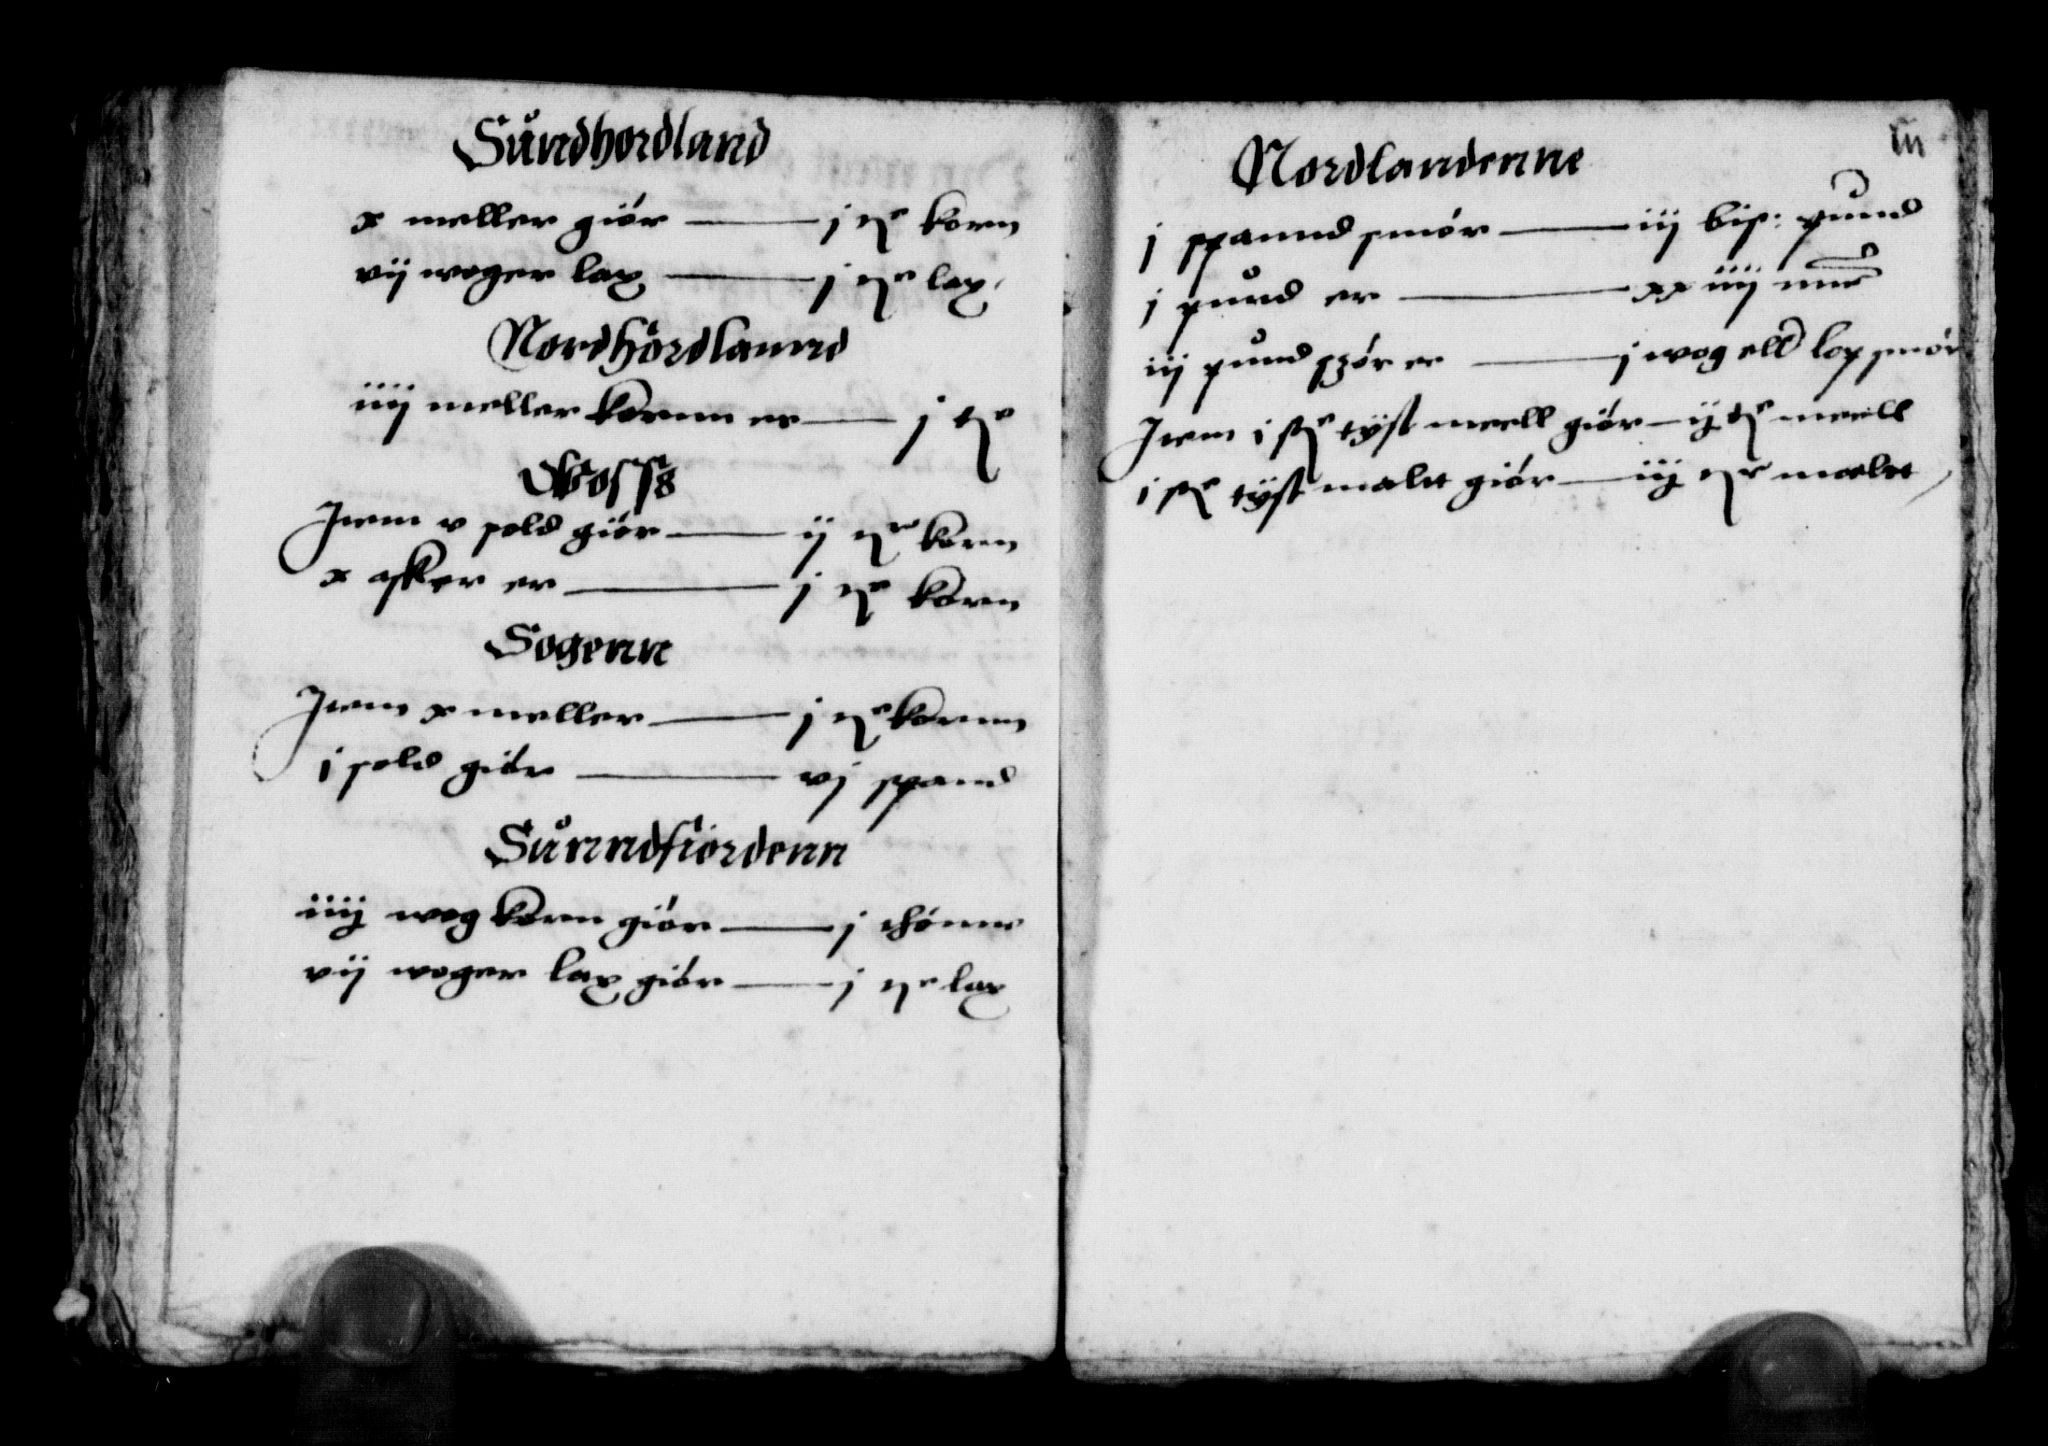 Sundhordland
x meller giör — j tne korn
vij woger lax — j tne lax
Nordhordlannd
iiij meller kornn er — j tne
Woss
Item v sold giör — ij tner korn
x asker er — j tne korn
Sogenn
Item x meller — j tne kornn
i sold giör — vj spand
Sunndfiordenn
iiij wog korn giör — j thönne
vij woger lax giör — j tne lax
iij
Nordlandenne
j spannd smör — iij bis: pund
j pund er — xx iiij mrc
iij pund er — j wog eld lop smör
Item i ste tyst meell giör — ij tne meell
i ste tyst malt giör — iij tner malt